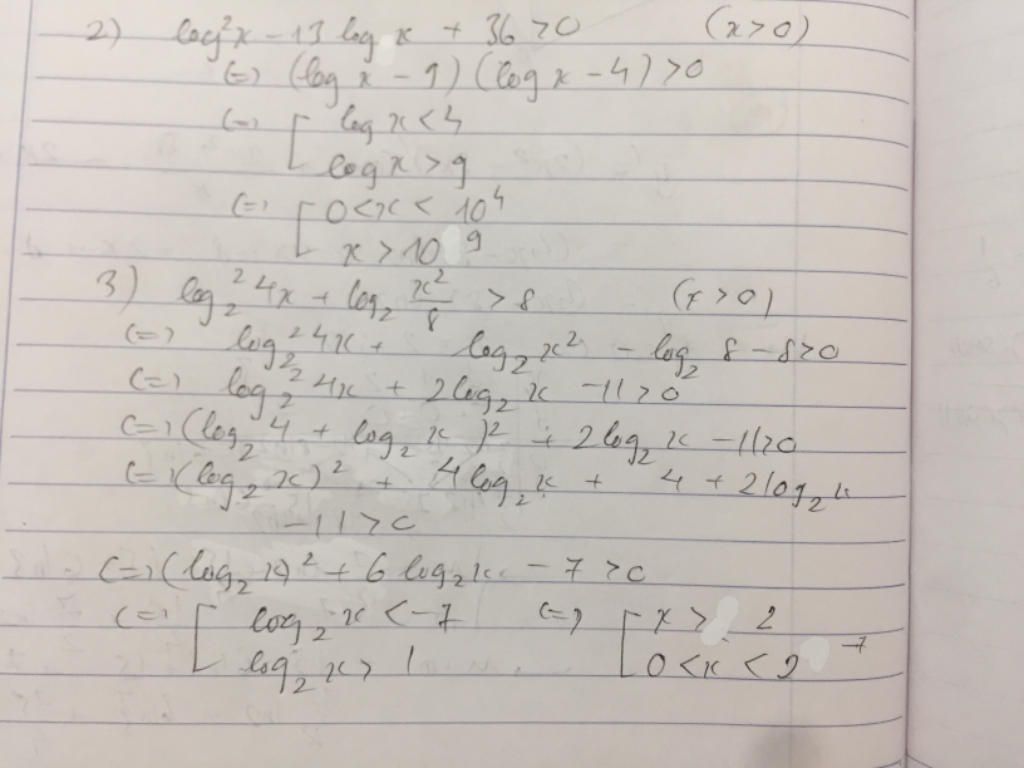 2) log²x - 13 log x + 36 > 0 (x > 0)
(=) (log x - 9) (log x - 4) > 0
(=) [ log x < 4
log x > 9
(=) [ 0 < x < 10⁴
x > 10⁹
3) log₂² 4x + log₂ x²/8 > 8 (x > 0)
(=) log₂² 4x + log₂ x² - log₂ 8 - 8 > 0
(=) log₂² 4x + 2 log₂ x - 11 > 0
(=) (log₂ 4 + log₂ x)² + 2 log₂ x - 11 > 0
(=) (log₂ x)² + 4 log₂ x + 4 + 2 log₂ x
- 11 > 0
(=) (log₂ x)² + 6 log₂ x - 7 > 0
(=) [ log₂ x < -7 (=) [ x > 2
log₂ x > 1 0 < x < 2⁻⁷